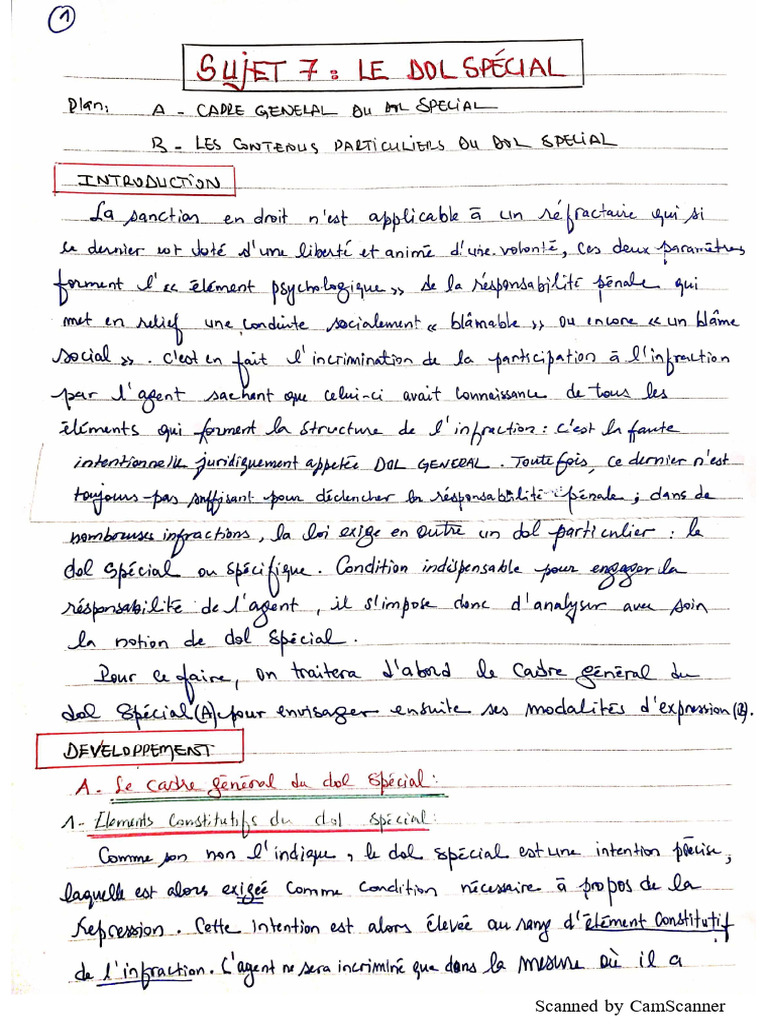 1
SUJET 7 : LE DOL SPÉCIAL
Plan: A - CADRE GENERAL DU DOL SPECIAL
B - LES CONTENUS PARTICULIERS DU DOL SPECIAL
INTRODUCTION
La sanction en droit n'est applicable à un réfractaire qui si
ce dernier est doté d'une liberté et animé d'une volonté, Ces deux paramètres
forment l'« élément psychologique » de la résponsabilité pénale qui
met en relief une conduite socialement « blâmable » ou encore « un blâme
social ». C'est en fait l'incrimination de la participation à l'infraction
par l'agent sachant que celui-ci avait connaissance de tous les
éléments qui forment la structure de l'infraction : c'est la faute
intentionnelle juridiquement appelée DOL GENERAL. Toutefois, ce dernier n'est
toujours pas suffisant pour déclencher la résponsabilité pénale ; dans de
nombreuses infractions, la loi exige en outre un dol particulier : le
dol spécial ou spécifique. Condition indispensable pour engager la
résponsabilité de l'agent, il s'impose donc d'analyser avec soin
la notion de dol spécial.
Pour ce faire, on traitera d'abord le cadre général du
dol spécial (A) pour envisager ensuite ses modalités d'expression (B).
DEVELOPPEMENT
A. Le cadre général du dol spécial :
1- Elements Constitutifs du dol spécial :
Comme son non l'indique, le dol spécial est une intention précise,
laquelle est alors exigée comme condition nécessaire à propos de la
repression. Cette intention est alors élevée au rang d'élément constitutif
de l'infraction. L'agent ne sera incriminé que dans la mesure où il a
Scanned by CamScanner